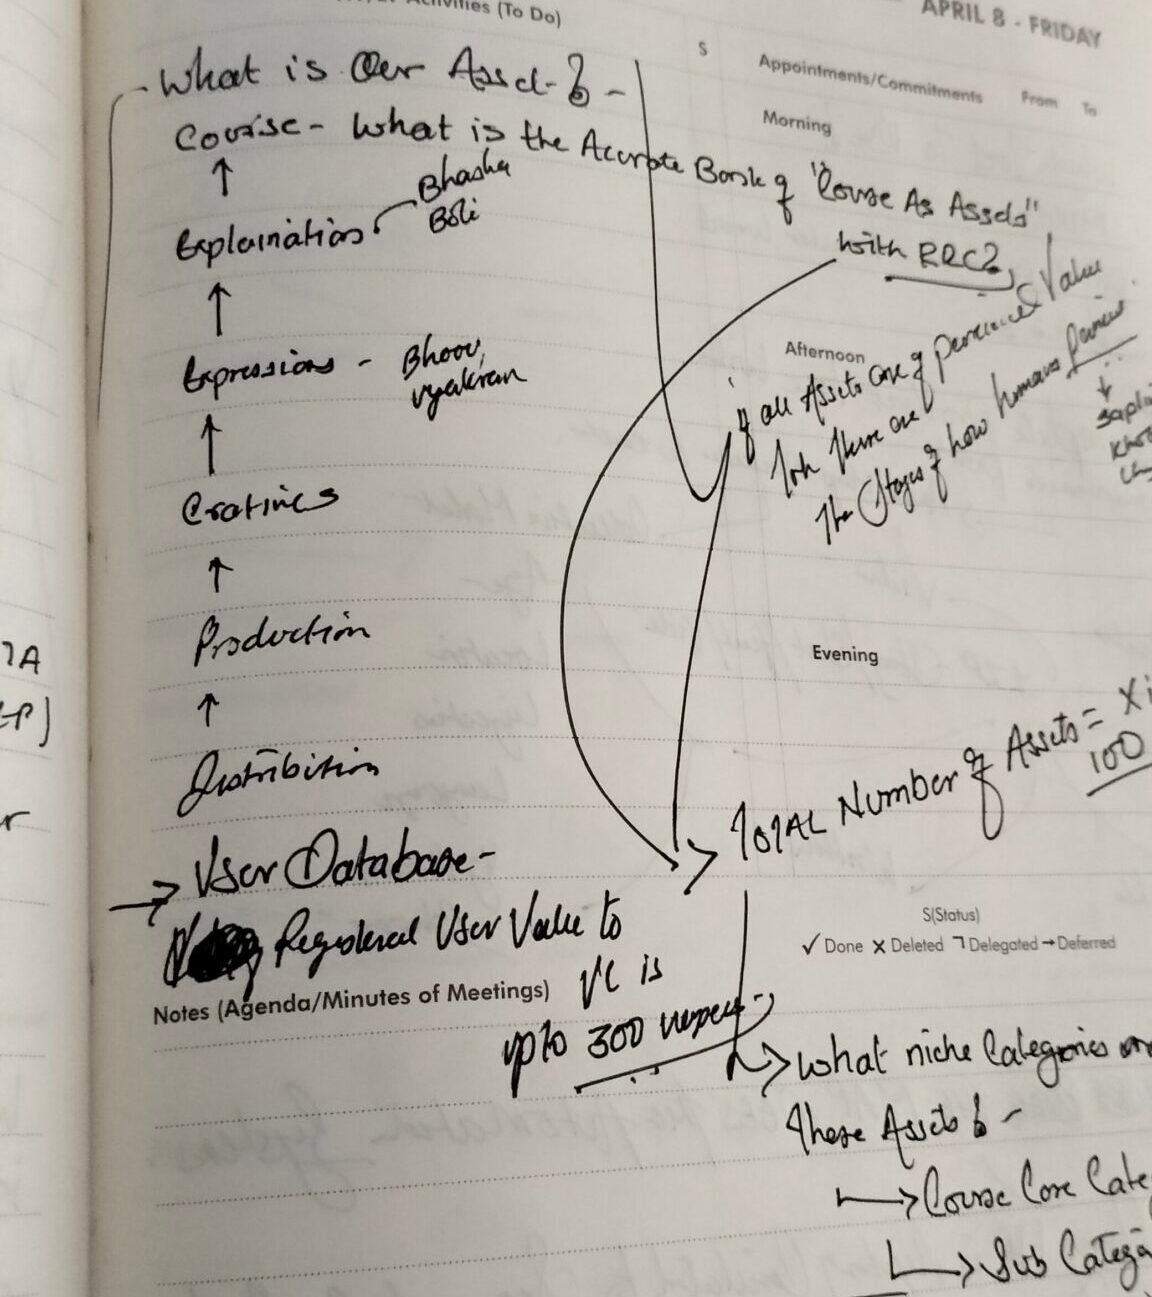 Activities (To Do)
APRIL 8 - FRIDAY
S
Appointments/Commitments From To
What is Our Asset ? -
Morning
Course - What is the Accurate Bank of "Course As Assets"
with RRC?
Explaination
Bhasha
Boli
Expressions - Bhaav,
vyakran
Afternoon
if all Assets are of perceived Value
Then there are
The Stages of how humans
Creatives
Production
Evening
Distribition
TOTAL Number of Assets =
100
User Database -
Registered User Value to
VC is
upto 300 rupees
S(Status)
✓ Done x Deleted ㄱ Delegated → Deferred
Notes (Agenda/Minutes of Meetings)
What niche Categories
these Assets ? -
Course Core Cate
Sub Catego